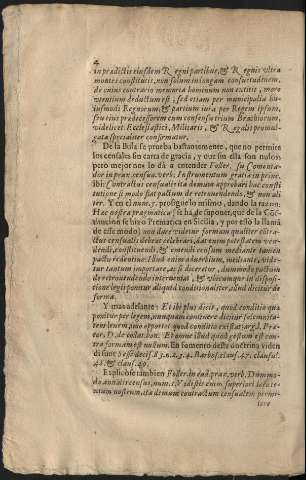 4
in prædictis eiusdem Regni partibus, & Regnis vltra
montes constitutis, non solum in longam consuetudinem,
de cuius contrario memoria hominum non extitit, more
vtentium deductum est, sed etiam per municipalia hu-
iusmodi Regnicrum, & partium iura per Regem ipsum,
seu eius prædecessorem cum consensu trium Brachiorum,
videlicet Ecclesiastici, Militaris, & Regalis promul-
gata specialiter confirmatur.
De la Bula se prueba bastantemente, que no permite
los censales sin carta de gracia, y que sin ella son nulos:
pero mejor nos lo dà a entender Foller. su Comenta-
dor in pran. censua. verb. Instrumentum gratia in princ.
ibi: Contractus censualitia demum approbari hac consti
tutione si modo fiat pactum de retrouendendo, & non ali
ter. Y en el num. 7. prosiguelo mismo, dando la razon:
Hac nostra pragmatica (se ha de suponer, que de la Cos-
titucion se hizo Pracmatica en Sicilia, y por esso la llama
de este modo) non dare videtur formam qualiter contra-
ctus censualis debeat celebrari, dat enim potestatem ven-
dendi, constituendi, & emendi censum mediante tamen
pacto redentiuo. Illud enim aduerbium, mediante, vide-
tur tantum importare, ac si diceretur, dummodo pactum
de retrouendendo interueniat, & vbicumque in dispositi-
one legis ponitur aliquod conditionaliter, aliud dicitur de
forma.
Y mas adelante: Et ibi plus dicit, quod conditio que
ponitur per legem, nunquam continere dicitur se
leuem, imo oportet quod conditio existat, arg. l. Præ-
tor. D. de collat. bon. Et omne illud quod gestum est con-
tra formam est nullum. En fomento desta doctrina viden
di sunt Sesse decis. 83. n. 2. 3. 4. Barbos. claus. 47. clausul.
48. & claus. 49.
Explicòse tambien Foller. in ead. prac. verb. Dummo-
do annuus census, num. 1. Vidistis enim superiori
tractum nostrum, ita demum contractum censualem permi-